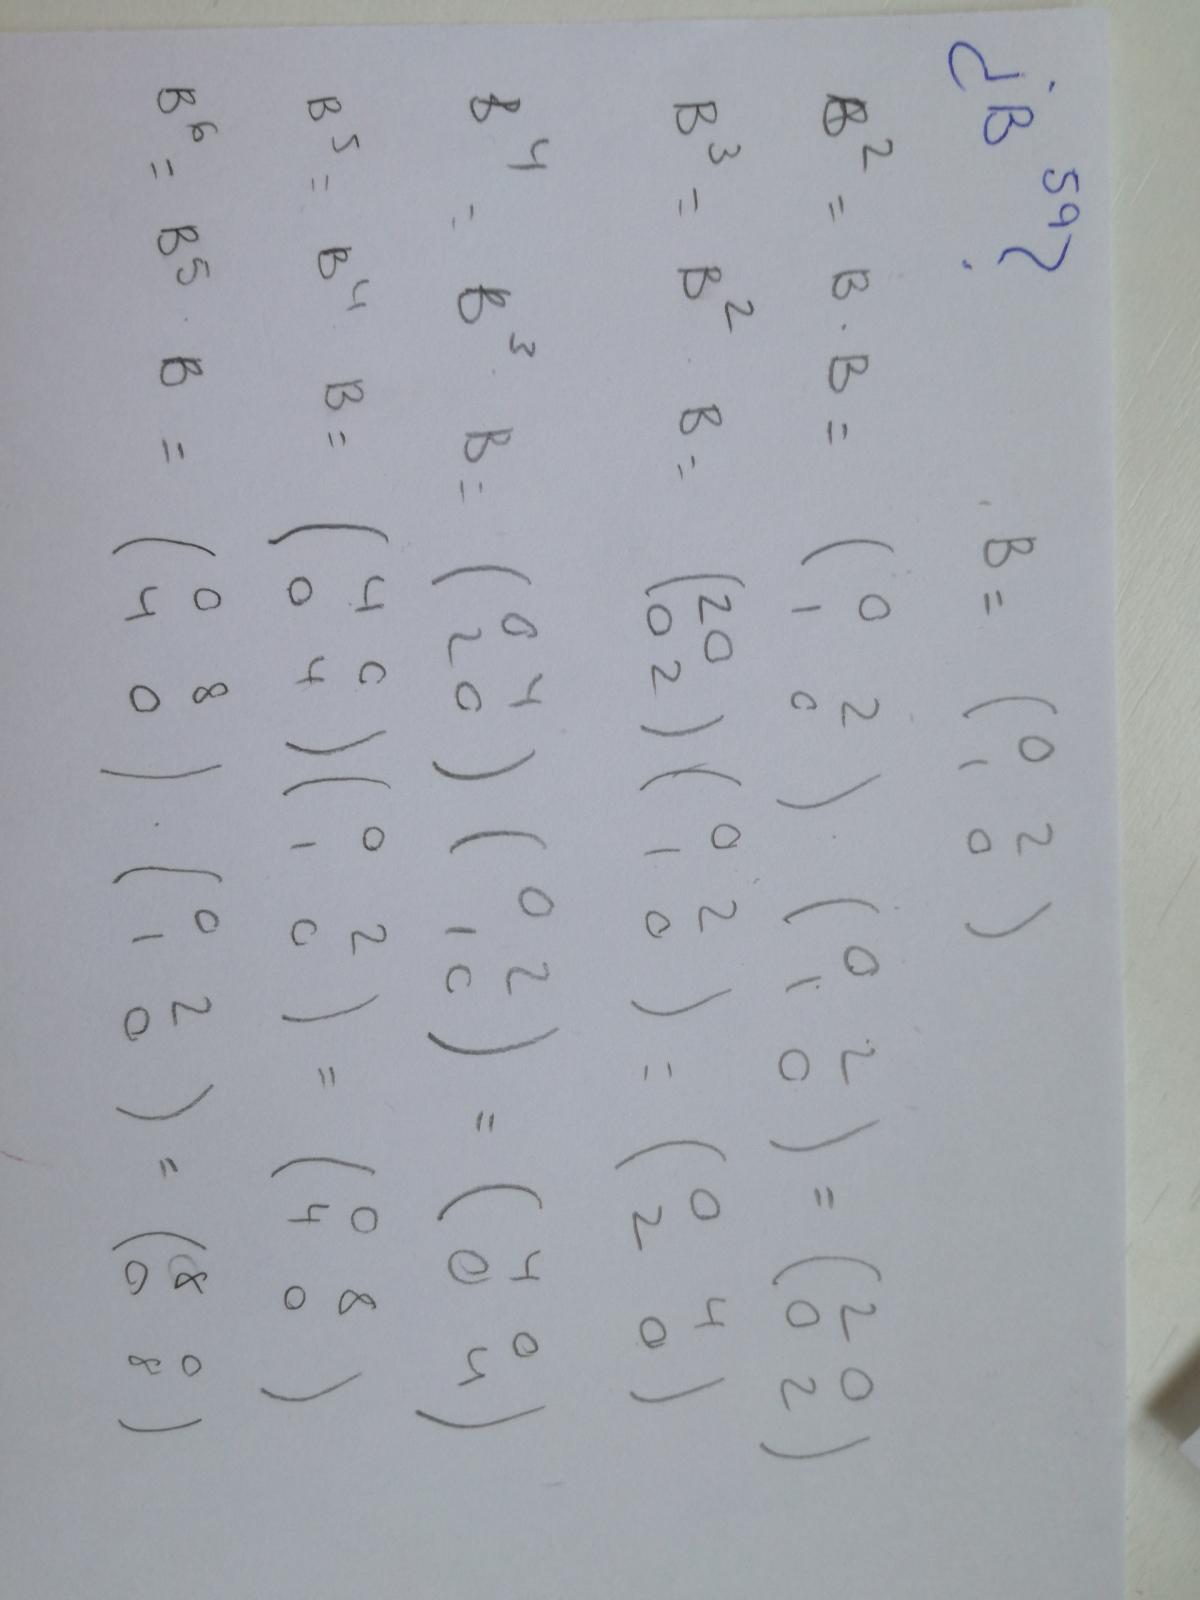 ¿B^59?
B = (0 2
1 0)
B^2 = B · B = (0 2
1 0) · (0 2
1 0) = (2 0
0 2)
B^3 = B^2 · B = (2 0
0 2) (0 2
1 0) = (0 4
2 0)
B^4 = B^3 · B = (0 4
2 0) (0 2
1 0) = (4 0
0 4)
B^5 = B^4 B = (4 0
0 4) (0 2
1 0) = (0 8
4 0)
B^6 = B^5 · B = (0 8
4 0) · (0 2
1 0) = (8 0
0 8)